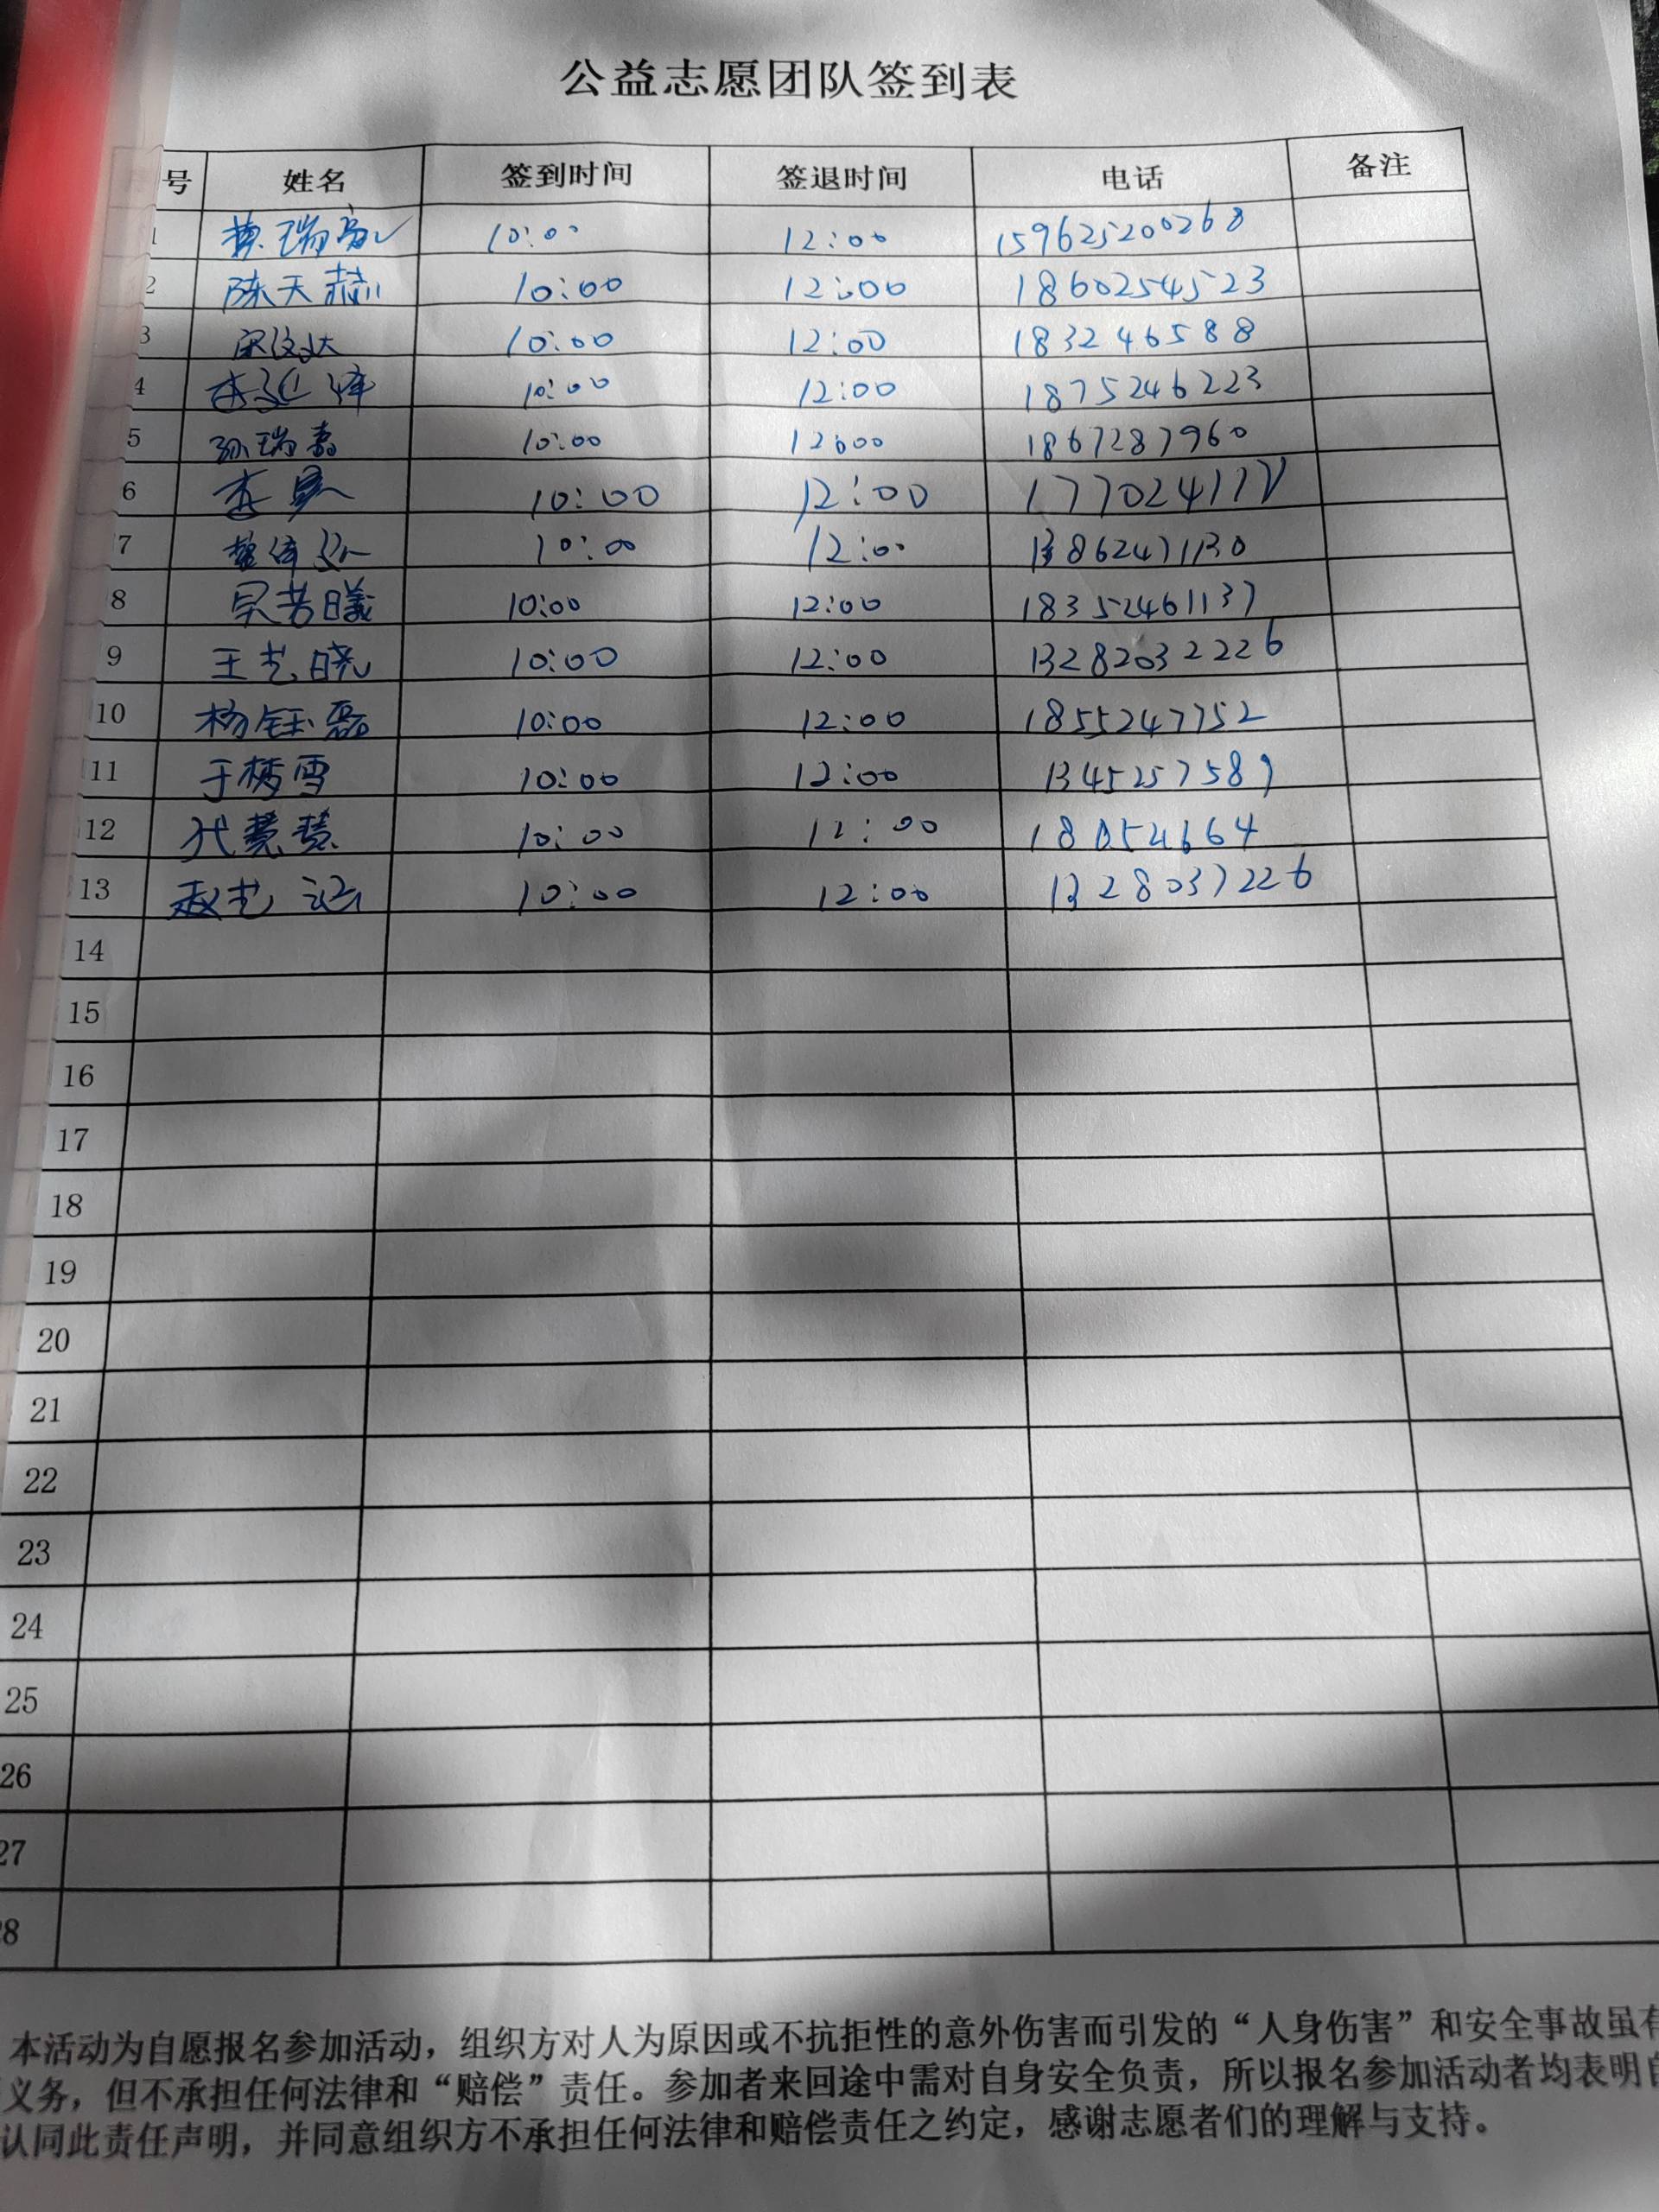 公益志愿团队签到表
号 姓名 签到时间 签退时间 电话 备注
1 瑞 10:00 12:00 159625200268
2 陈天赫 10:00 12:00 1860254523
3 10:00 12:00 183246588
4 李延峰 10:00 12:00 1875246223
5 孙瑞 10:00 12:00 1867287960
6 李 10:00 12:00 177024117
7 10:00 12:00
8 吴若曦 10:00 12:00 18352461137
9 王艺晓 10:00 12:00 13282032226
10 杨钰磊 10:00 12:00 1855247752
11 于梦雪 10:00 12:00 1345257589
12 代慧慧 10:00 12:00
13 赵艺涵 10:00 12:00
14
15
16
17
18
19
20
21
22
23
24
25
26
27
28
本活动为自愿报名参加活动，组织方对人为原因或不抗拒性的意外伤害而引发的“人身伤害”和安全事故虽有
义务，但不承担任何法律和“赔偿”责任。参加者来回途中需对自身安全负责，所以报名参加活动者均表明自
认同此责任声明，并同意组织方不承担任何法律和赔偿责任之约定，感谢志愿者们的理解与支持。